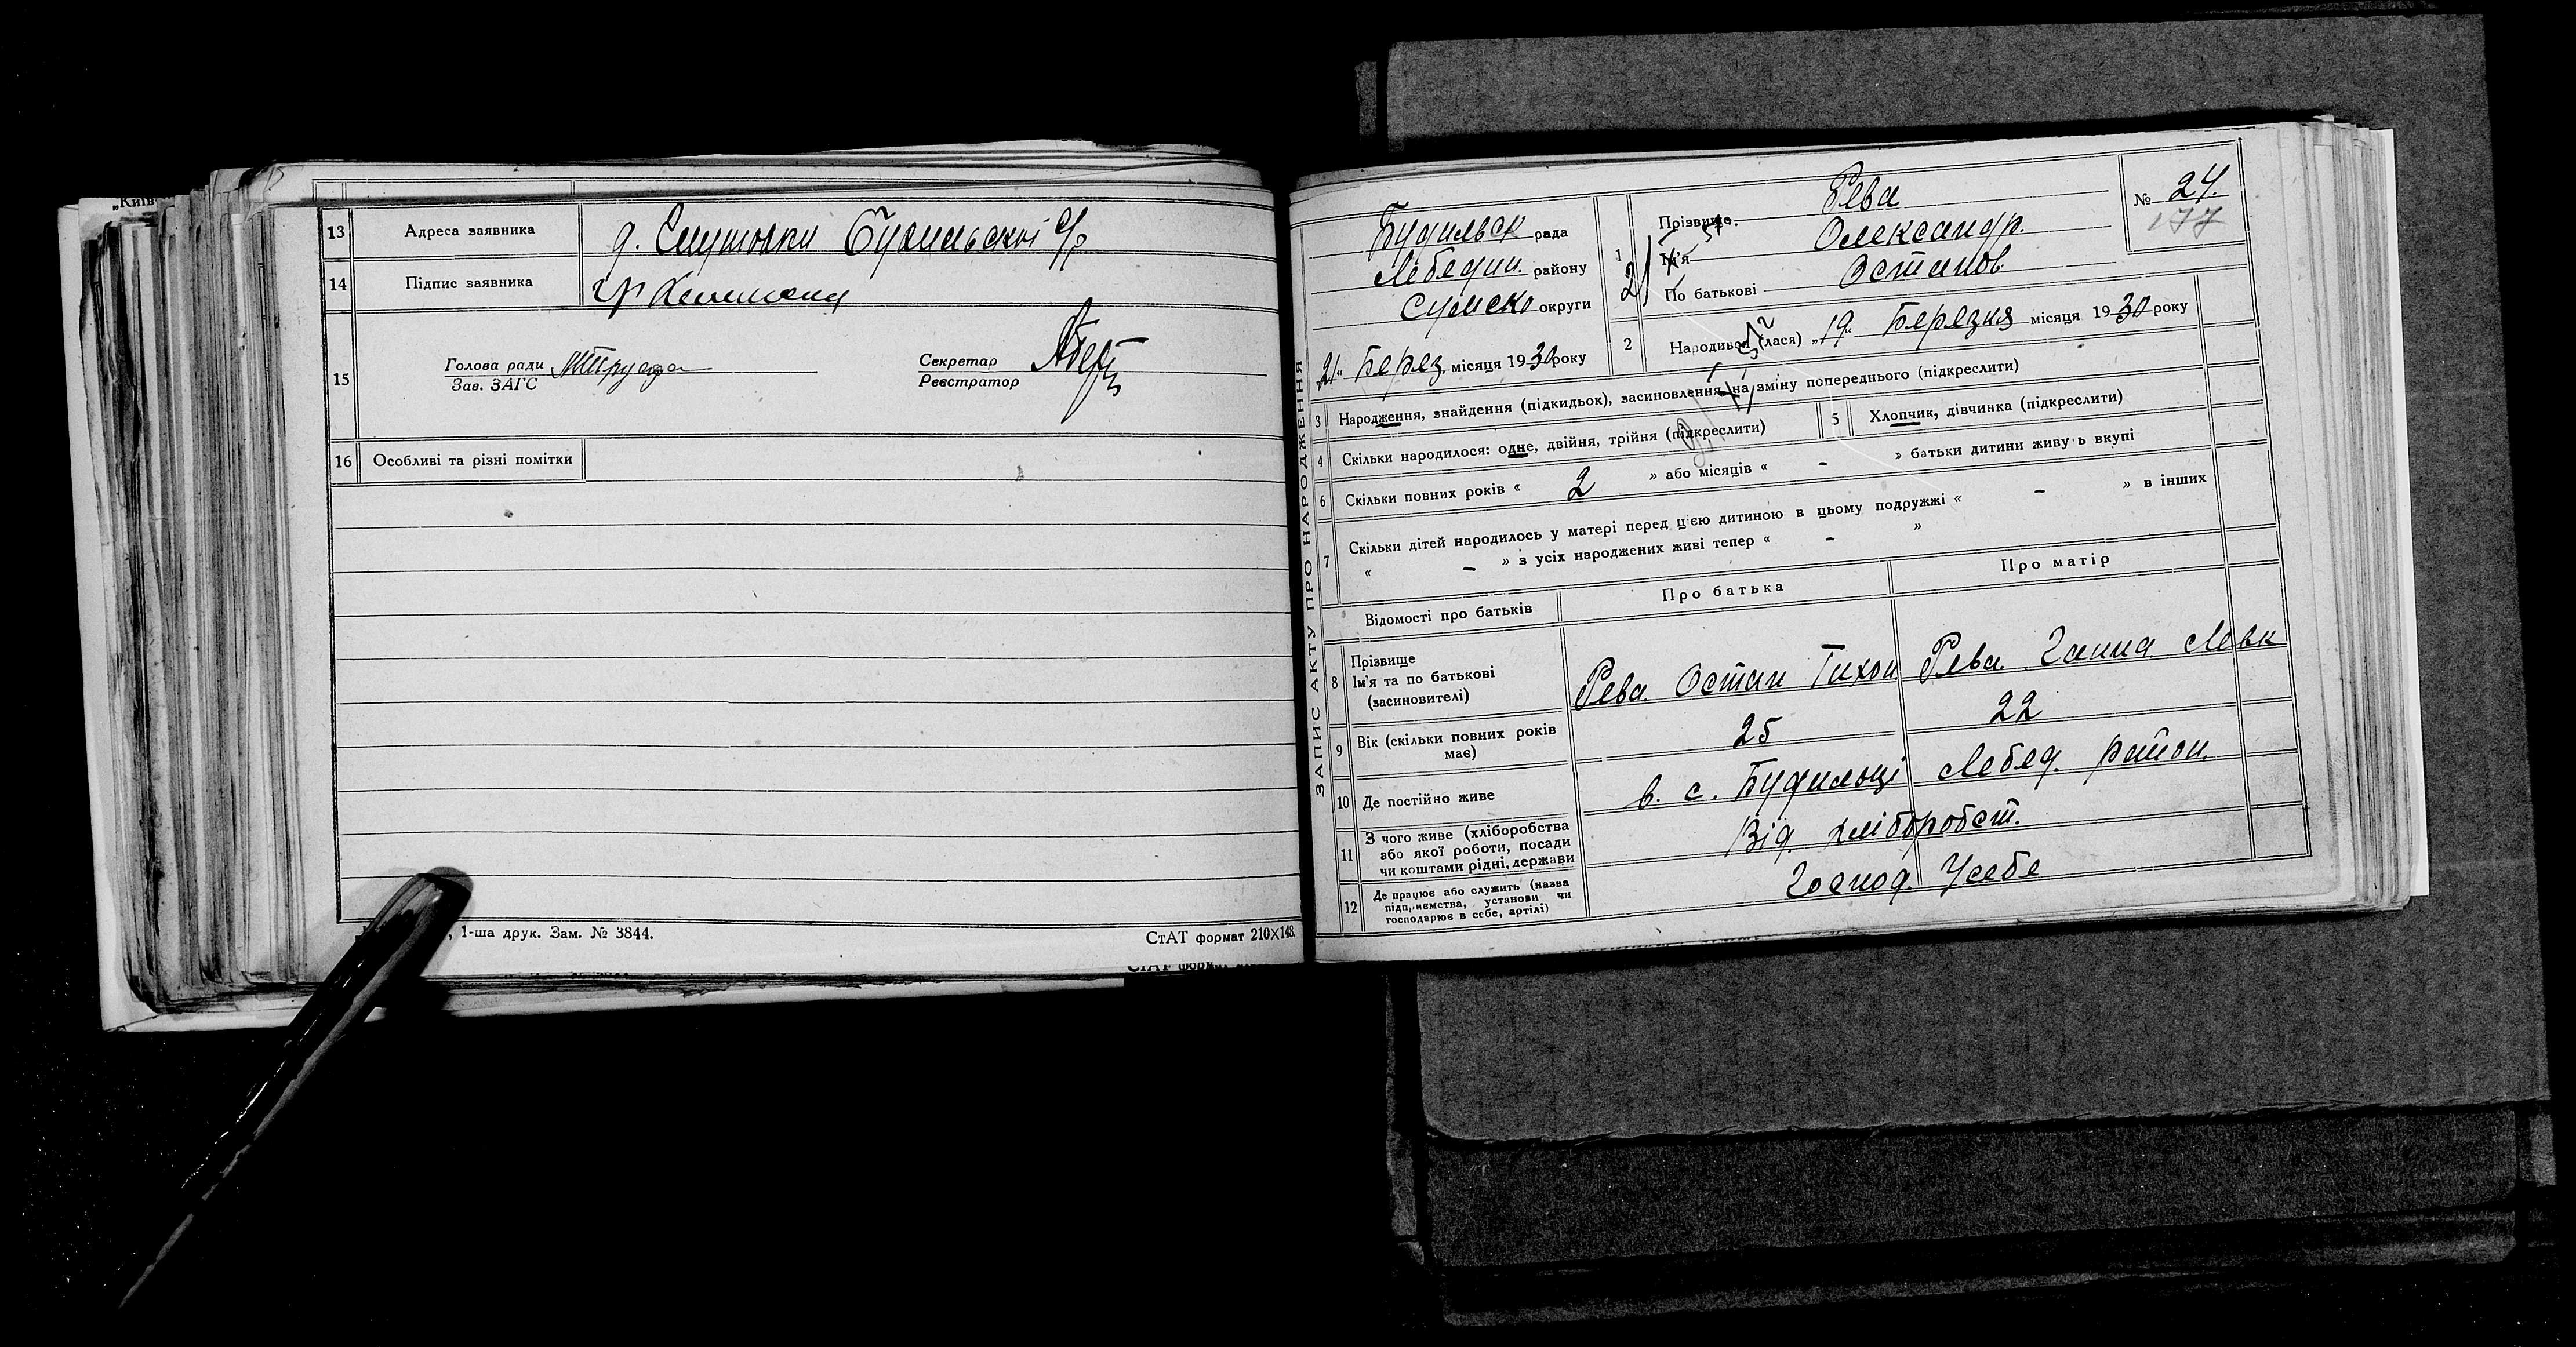 „Київ
13 Адреса заявника
14 Підпис заявника
15 Голова ради
Зав. ЗАГС
Секретар
Реєстратор
16 Особливі та різні помітки
, 1-ша друк. Зам. № 3844.
СтАТ формат 210X148.
ЗАПИС АКТУ ПРО НАРОДЖЕННЯ
Будильск рада
Лебедин. району
Сумско округи
„21“ Берез. місяця 1930 року
1 Прізвище Рева
Ім'я Олександр.
По батькові Остапов.
№ 24.
177
2 Народився (лася) „19“ Березня місяця 1930 року
3 Народження, знайдення (підкидьок), засиновлення, на зміну попереднього (підкреслити)
4 Скільки народилося: одне, двійня, трійня (підкреслити)
5 Хлопчик, дівчинка (підкреслити)
6 Скільки повних років « 2 » або місяців « - » батьки дитини живуть вкупі
7 Скільки дітей народилось у матері перед цією дитиною в цьому подружжі « - » в інших
« - » з усіх народжених живі тепер « - »
Відомості про батьків
Про батька
Про матір
8 Прізвище
Ім'я та по батькові
(засиновителі)
Рева Остап Тихон
Рева Ганна Левк
9 Вік (скільки повних років
має)
25
22
10 Де постійно живе
в. с. Будильці Лебед. район.
11 З чого живе (хліборобства
або якої роботи, посади
чи коштами рідні, держави
Від. хліборобст.
12 Де працює або служить (назва
підприємства, установи чи
господарює в себе, артілі)
Господ. Усебе